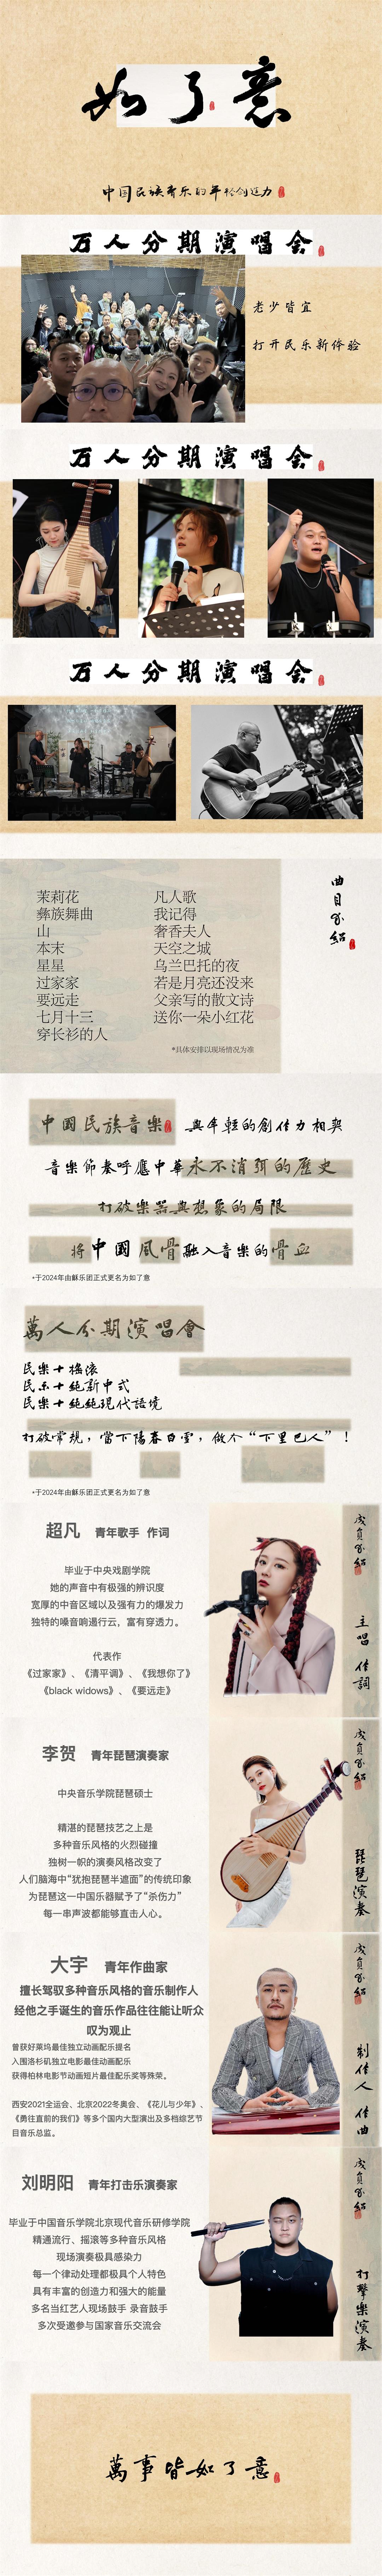 如了意
中国民族音乐的年轻创造力
万人分期演唱会
老少皆宜
打开民乐新体验
万人分期演唱会
万人分期演唱会
曲目介紹
茉莉花
彝族舞曲
山
本末
星星
过家家
要远走
七月十三
穿长衫的人
凡人歌
我记得
奢香夫人
天空之城
乌兰巴托的夜
若是月亮还没来
父亲写的散文诗
送你一朵小红花
*具体安排以现场情况为准
中國民族音樂 與年輕的創作力相契
音樂節奏呼應中華永不消弭的歷史
打破樂器與想象的局限
將中國風骨融入音樂的骨血
*于2024年由龢乐团正式更名为如了意
萬人分期演唱會
民樂+搖滾
民乐+純新中式
民樂+純純現代語境
打破常規，當下陽春白雪，做个“下里巴人”！
*于2024年由龢乐团正式更名为如了意
超凡 青年歌手 作词
毕业于中央戏剧学院
她的声音中有极强的辨识度
宽厚的中音区域以及强有力的爆发力
独特的嗓音响遏行云，富有穿透力。
代表作
《过家家》、《清平调》、《我想你了》
《black widows》、《要远走》
成員介紹
主唱 作詞
李贺 青年琵琶演奏家
中央音乐学院琵琶硕士
精湛的琵琶技艺之上是
多种音乐风格的火烈碰撞
独树一帜的演奏风格改变了
人们脑海中“犹抱琵琶半遮面”的传统印象
为琵琶这一中国乐器赋予了“杀伤力”
每一串声波都能够直击人心。
成員介紹
琵琶演奏
大宇 青年作曲家
擅长驾驭多种音乐风格的音乐制作人
经他之手诞生的音乐作品往往能让听众
叹为观止
曾获好莱坞最佳独立动画配乐提名
入围洛杉矶独立电影最佳动画配乐
获得柏林电影节动画短片最佳配乐奖等殊荣。
西安2021全运会、北京2022冬奥会、《花儿与少年》、
《勇往直前的我们》等多个国内大型演出及多档综艺节
目音乐总监。
成員介紹
制作人 作曲
刘明阳 青年打击乐演奏家
毕业于中国音乐学院北京现代音乐研修学院
精通流行、摇滚等多种音乐风格
现场演奏极具感染力
每一个律动处理都极具个人特色
具有丰富的创造力和强大的能量
多名当红艺人现场鼓手 录音鼓手
多次受邀参与国家音乐交流会
成員介紹
打擊樂演奏
萬事皆如了意